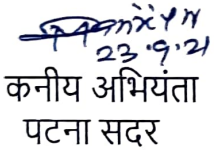 23.9.21
कनीय अभियंता
पटना सदर